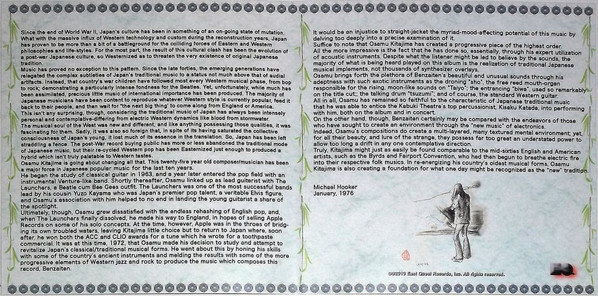 Since the end of World War II, Japan's culture has been in something of an on-going state of mutation.
What with the massive influx of Western technology and custom during the reconstruction years, Japan
has proven to be more than a bit of a battleground for the colliding forces of Eastern and Western
philosophies and life-styles. For the most part, the result of this cultural clash has been the evolution of
a post-war Japanese culture, so Westernized as to threaten the very existence of original Japanese
tradition.
Music has proved no exception to this pattern. Since the late forties, the emerging generations have
relegated the complex subtleties of Japan's traditional music to a status not much above that of audial
artifacts. Instead, that country's war children have followed most every Western musical phase, from bop
to rock; demonstrating a particularly intense fondness for the Beatles. Yet, unfortunately, while much has
been assimilated, precious little music of international importance has been produced. The majority of
Japanese musicians have been content to reproduce whatever Western style is currently popular, feed it
back to their people, and then wait for the next big thing to come along from England or America.
This isn't any surprising, though, considering the traditional music of Japan has always been intensely
personal and contemplative-differing from electric Western dynamics like blood from stormwater.
The musical element of the West was new and different, and like anything possessing those qualities, it was
fascinating for them. Sadly, it was also so foreign that, in spite of its having saturated the collective
consciousness of Japan's young, it lost much of its essence in the translation. So, Japan has been left
straddling a fence. The post-War record buying public has more or less abandoned the traditional mode
of Japanese music, but their re-cycled Western pop has been Easternized just enough to produced a
hybrid which isn't truly palatable to Western tastes.
Osamu Kitajima is going about changing all that. This twenty-five year old composer/musician has been
a major force in Japanese popular music for the last ten years.
He began the study of classical guitar in 1963, and a year later entered the pop field with an
instrumental Venture-like band. Shortly thereafter, Osamu linked up as lead guitarist with The
Launchers, a Beatle cum Bee Gees outfit. The Launchers was one of the most successful bands
lead by his cousin Yuzo Kayama who was Japan's premier pop talent, a veritable Elvis figure,
and Osamu's association with him helped to no end in landing the young guitarist a share of
the spotlight.
Ultimately, though, Osamu grew dissatisfied with the endless rehashing of English pop, and,
when The Launchers finally dissolved, he made his way to England, in hopes of selling Apple
Records on some of his solo concepts. At the time, however, Apple was in the throes of bridg-
ing its own troubled waters, leaving Kitajima little choice but to return to Japan where, soon
after, he won both the ACC and CLIO awards for a tune which he wrote for a toothpaste
commercial. It was at this time, 1972, that Osamu made his decision to study and attempt to
revitalize Japan's classical/traditional musical forms. He went about this by honing his skills
with some of the country's ancient instruments and melding the results with some of the more
progressive elements of Western jazz and rock to produce the music which composes this
record, Benzaiten.
It would be an injustice to straight-jacket the myriad-mood-affecting potential of this music by
delving too deeply into a precise examination of it.
Suffice to note that Osamu Kitajima has created a progressive piece of the highest order.
All the more impressive is the fact that he has done so, essentially, through his expert utilization
of acoustic instruments. Despite what the listener might be led to believe by the sounds, the
majority of what is being heard played on this album is the realization of traditional Japanese
musical implements of thousands of synthesizers.
Osamu brings forth the plethora of Benzaiten's beautiful and unusual sounds through his
adeptness with such exotic instruments as the droning "sho", the free reed mouth-organ
responsible for the rising, moon-like sounds on "Taiyo"; the entrancing "biwa", used so remarkably
on the title cut; the talking drum "tsuzumi"; and of course, the standard Western guitar.
All in all, Osamu has remained so faithful to the characteristic of Japanese traditional music
that he was able to entice the Kabuki Theatre's top percussionist, Kisaku Katada, into performing
with him, both on the album and in concert.
On the other hand, though, Benzaiten certainly may be compared with the endeavors of those
who have sought to create an environment through the "new music" of electronics.
Indeed, Osamu's compositions do create a multi-layered, many textured mental environment; yet,
for all their beauty, and lure of the strange, they possess far too great an understated power to
allow too long a drift in any one contemplative direction.
Truly, Kitajima might just as easily be found comparable to the mid-sixties English and American
artists, such as the Byrds and Fairport Convention, who had then begun to breathe electric fire
into their respective folk musics. In re-energizing his country's oldest musical forms, Osamu
Kitajima is also creating a foundation for what one day might be recognized as the "new" tradition.
Michael Hooker
January, 1976
©℗1975 East Quest Records, Inc. All rights reserved.